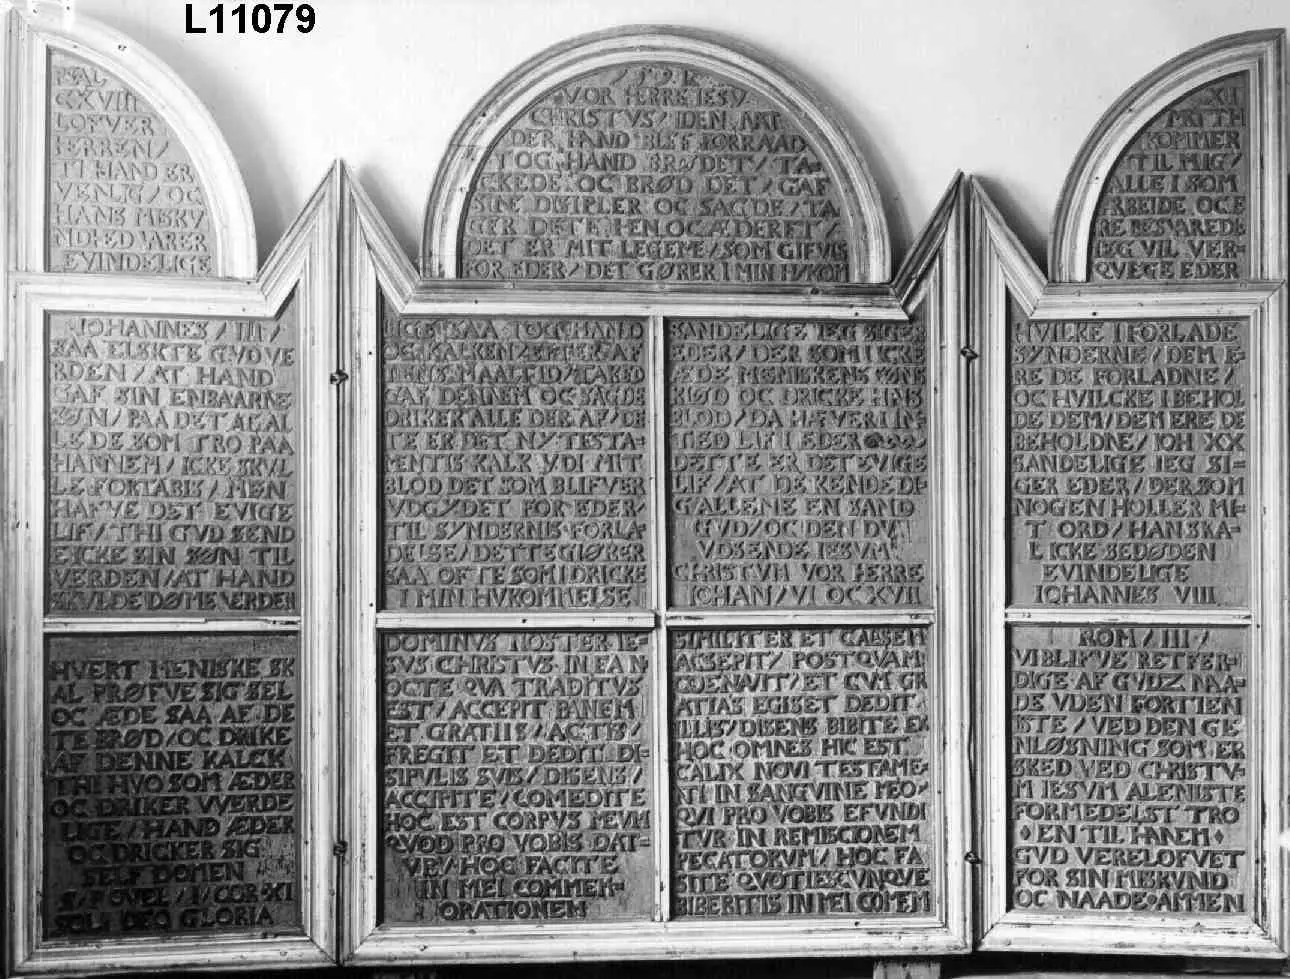 L11079
PSAL
CXVIII
LOFVER
HERREN/
TI HAND ER
VENLIG/ OC
HANS MISKV
NDHED VARER
EVINDELIGE
IOHANNES/ III/
SAA ELSKTE GVD VE
RDEN/ AT HAND
GAF SIN ENBAARNE
SØN/ PAA DET AT AL
LE DE SOM TRO PAA
HANNEM/ ICKE SKVL
LE FORTABIS/ MEN
HAFVE DET EVIGE
LIF/ THI GVD SEND
EICKE SIN SØN TIL
VERDEN/ AT HAND
SKVLDE DØME VERDEN
HVERT MENISKE SK
AL PRØFVE SIG SEL
OC ÆDE SAA AF DE
TE BRØD/ OC DRIKE
AF DENNE KALCK
THI HVO SOM ÆDER
OC DRIKER VVERDE
LIGE/ HAND ÆDER
OC DRICKER SIG
SELF DOMEN
S/ POVEL/ I/ COR XI
SOLI DEO GLORIA
VOR HERRE IESV
CHRISTVS/ I DEN NAT
DER HAND BLEF FORRAAD
TOG HAND BRØDET/ TA
CKEDE OC BRØD DET/ GAF
SINE DISIPLER OC SAGDE/ TA
GER DET HEN OC ÆDER ET/
DET ER MIT LEGEME/ SOM GIFVIS
FOR EDER/ DET GØRER I MIN HVKOM
LIGESAA TOG HAND
OC KALKEN/ EFTER AF
TENS MAALTID/ TAKED
GAF DENNEM OC SAGDE
DRIKER ALLE DER AF/ DET
TE ER DET NY TESTA=
MENTIS KALK VDI MIT
BLOD DET SOM BLIFVER
VDGY/ DET FOR EDER/
TIL SYNDERNIS FORLA=
DELSE/ DETTE GIØRER
SAA OFTE SOM I DRICKE
I MIN HVKOMMELSE
SANDELIGE IEG SIGE
EDER/ DER SOM I ICKE
ÆDE MENISKENS SØNS
KIØD OC DRICKE HANS
BLOD/ DA HFVER I IN
TED LIF I EDER
DETTE ER DET EVIGE
LIF/ AT DE KENDE DI=
G ALLENE EN SAND
GVD/ OC DEN DV
VDSENDE IESVM
CHRISTVM VOR HERRE
IOHAN/ VI OC XVII
DOMINVS NOSTER IE=
SVS CHRISTVS IN EA N
OCTE QVA TRADITVS
EST/ ACCEPIT PANEM
ET GRATIIS/ ACTIS/
FREGIT ET DEDIT DI=
SIPVLIS SVIS/ DISENS/
ACCIPITE/ COMEDITE
HOC EST CORPVS MEVM
QVOD PRO VOBIS DAT=
VR/ HOC FACITE
IN MEI COMMEM=
ORATIONEM
SIMILIT ER ET CALSEM
ACSEPIT/ POSTQVAM
COENAVIT/ ET CVM GR
ATIAS EGISET DEDIT
ILLIS/ DISENS BIBITE EX
HOC OMNES HIC EST
CALIX NOVI TESTAME=
NTI IN SANGVINE MEO
QVI PRO VOBIS EFVNDI
TVR IN REMISCIONEM
PECATORVM/ HOC FA
SITE QVOTIESCVNQVE
BIBERITIS IN MEI COMEM
XI
KOMMER
TIL MIG/
ALLE I SOM
ARBEIDE OC E
RE BESVAREDE
IEG VIL VER=
QVEGE EDER
HVILKE I FORLADE
SYNDERNE/ DEM E=
RE DE FORLADNE/
OC HVILCKE I BEHOL
DE DEM/ DEM ERE DE
BEHOLDNE/ IOH XX
SANDELIGE IEG SI=
GER EDER/ DER SOM
NOGEN HOLLER MI=
T ORD/ HAN SKA=
L ICKE SE DØDEN
EVINDELIGE
IOHANNES VIII
ROM/ III/
VI BLIFVE RETFER=
DIGE AF GVDZ NAA=
DE VDEN FORTIEN
ISTE/ VED DEN GE=
NLØSNING SOM ER
SKED VED CHRISTV=
M IESVM ALENISTE
FORMEDELST TRO
EN TIL HANEM
GVD VERE LOFVET
FOR SIN MISKVND
OC NAADE AMEN